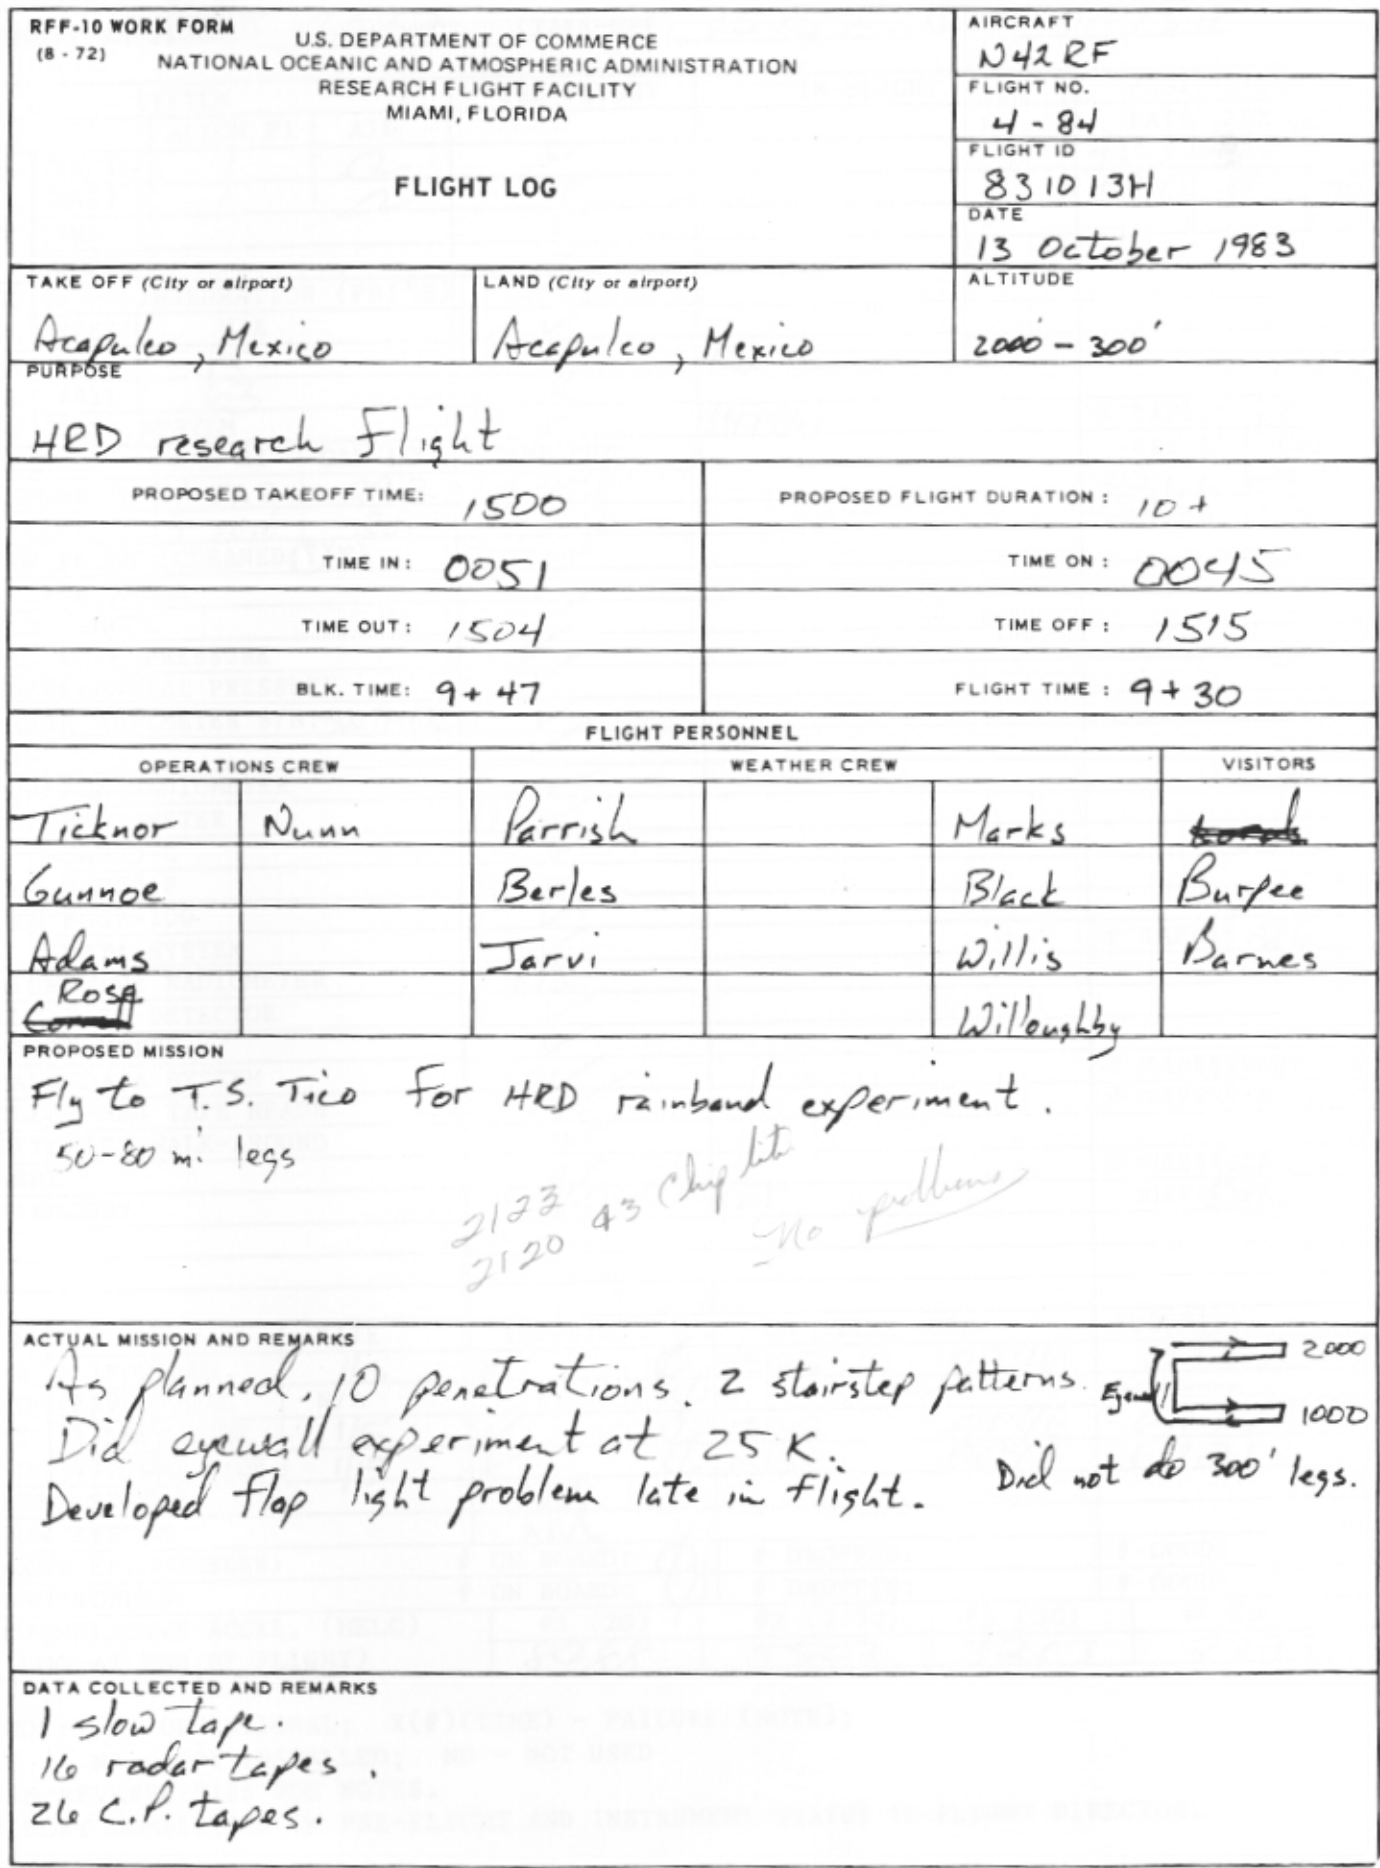 RFF-10 WORK FORM
(8 - 72)
U.S. DEPARTMENT OF COMMERCE
NATIONAL OCEANIC AND ATMOSPHERIC ADMINISTRATION
RESEARCH FLIGHT FACILITY
MIAMI, FLORIDA
FLIGHT LOG
AIRCRAFT
N42RF
FLIGHT NO.
4 - 84
FLIGHT ID
831013H
DATE
13 October 1983
TAKE OFF (City or airport)
Acapulco, Mexico
LAND (City or airport)
Acapulco, Mexico
ALTITUDE
2000' - 300'
PURPOSE
HRD research Flight
PROPOSED TAKEOFF TIME: 1500
PROPOSED FLIGHT DURATION: 10+
TIME IN: 0051
TIME ON: 0045
TIME OUT: 1504
TIME OFF: 1515
BLK. TIME: 9+47
FLIGHT TIME: 9+30
FLIGHT PERSONNEL
OPERATIONS CREW WEATHER CREW VISITORS
Ticknor Nunn Parrish Marks
Gunnoe Berles Black Burpee
Adams Jarvi Willis Barnes
Rosa
Willoughby
PROPOSED MISSION
Fly to T.S. Tico For HRD rainband experiment.
50-80 mi legs
2123 #3 Chip lite
2120 No problems
ACTUAL MISSION AND REMARKS
As planned. 10 penetrations. 2 stairstep patterns.
Did eyewall experiment at 25 K.
Developed flap light problem late in flight.
Eyewall
2000
1000
Did not do 300' legs.
DATA COLLECTED AND REMARKS
1 slow tape.
16 radar tapes.
26 C.P. tapes.